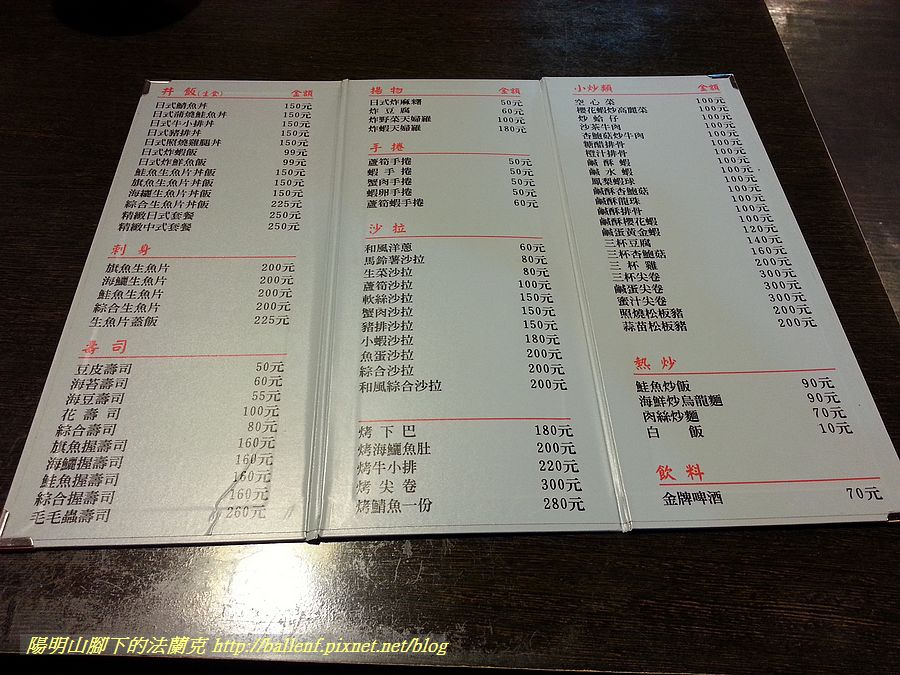 丼 飯(主食) 金額
日式鯖魚丼 150元
日式蒲燒鮭魚丼 150元
日式牛小排丼 150元
日式豬排丼 150元
日式照燒雞腿丼 150元
日式炸蝦飯 99元
日式炸鮮魚飯 99元
鮭魚生魚片丼飯 150元
旗魚生魚片丼飯 150元
海鱺生魚片丼飯 150元
綜合生魚片丼飯 225元
精緻日式套餐 250元
精緻中式套餐 250元
刺 身
旗魚生魚片 200元
海鱺生魚片 200元
鮭魚生魚片 200元
綜合生魚片 200元
生魚片蓋飯 225元
壽 司
豆皮壽司 50元
海苔壽司 60元
海豆壽司 55元
花 壽 司 100元
綜合壽司 80元
旗魚握壽司 160元
海鱺握壽司 160元
鮭魚握壽司 160元
綜合握壽司 160元
毛毛蟲壽司 260元
揚 物 金額
日式炸麻糬 50元
炸 豆 腐 60元
炸野菜天婦羅 100元
炸蝦天婦羅 180元
手 捲
蘆筍手捲 50元
蝦 手 捲 50元
蟹肉手捲 50元
蝦卵手捲 50元
蘆筍蝦手捲 60元
沙 拉
和風洋蔥 60元
馬鈴薯沙拉 80元
生菜沙拉 80元
蘆筍沙拉 100元
軟絲沙拉 150元
蟹肉沙拉 150元
豬排沙拉 150元
小蝦沙拉 180元
魚蛋沙拉 200元
綜合沙拉 200元
和風綜合沙拉 200元
烤 下 巴 180元
烤海鱺魚肚 200元
烤牛小排 220元
烤 尖 卷 300元
烤鯖魚一份 280元
小炒類 金額
空 心 菜 100元
櫻花蝦炒高麗菜 100元
炒 蛤 仔 100元
沙茶牛肉 100元
杏鮑菇炒牛肉 100元
糖醋排骨 100元
橙汁排骨 100元
鹹 酥 蝦 100元
鹹 水 蝦 100元
鳳梨蝦球 100元
鹹酥杏鮑菇 100元
鹹酥龍珠 100元
鹹酥排骨 100元
鹹酥櫻花蝦 100元
鹹蛋黃金蝦 120元
三杯豆腐 140元
三杯杏鮑菇 160元
三 杯 雞 200元
三杯尖卷 300元
鹹蛋尖卷 300元
蜜汁尖卷 300元
照燒松板豬 200元
蒜苗松板豬 200元
熱 炒
鮭魚炒飯 90元
海鮮炒烏龍麵 90元
肉絲炒麵 70元
白 飯 10元
飲 料
金牌啤酒 70元
陽明山腳下的法蘭克 http://ballenf.pixnet.net/blog